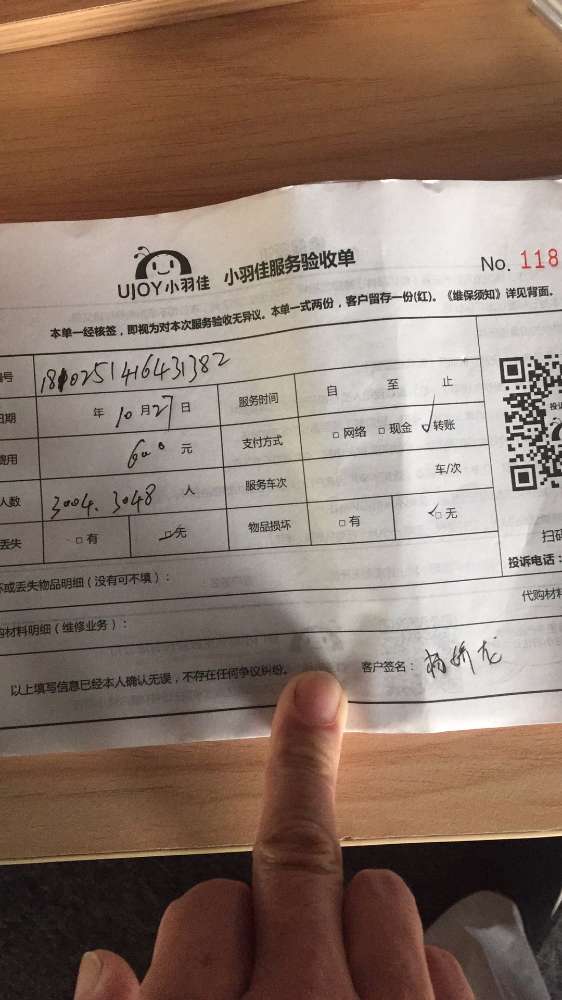 UJOY小羽佳 小羽佳服务验收单 No. 118
本单一经核签，即视为对本次服务验收无异议。本单一式两份，客户留存一份(红)。《维保须知》详见背面。
编号 181025141643​1382
日期 年 10 月 27 日 服务时间 自 至 止
费用 600 元 支付方式 □ 网络 □ 现金 ✓ 转账
人数 3004.3048 人 服务车次 车/次
丢失 □ 有 ✓ 无 物品损坏 □ 有 ✓□ 无
坏或丢失物品明细（没有可不填）： 投诉电话：
扫码
购材料明细（维修业务）： 代购材料
以上填写信息已经本人确认无误，不存在任何争议纠纷。 客户签名：杨娇龙